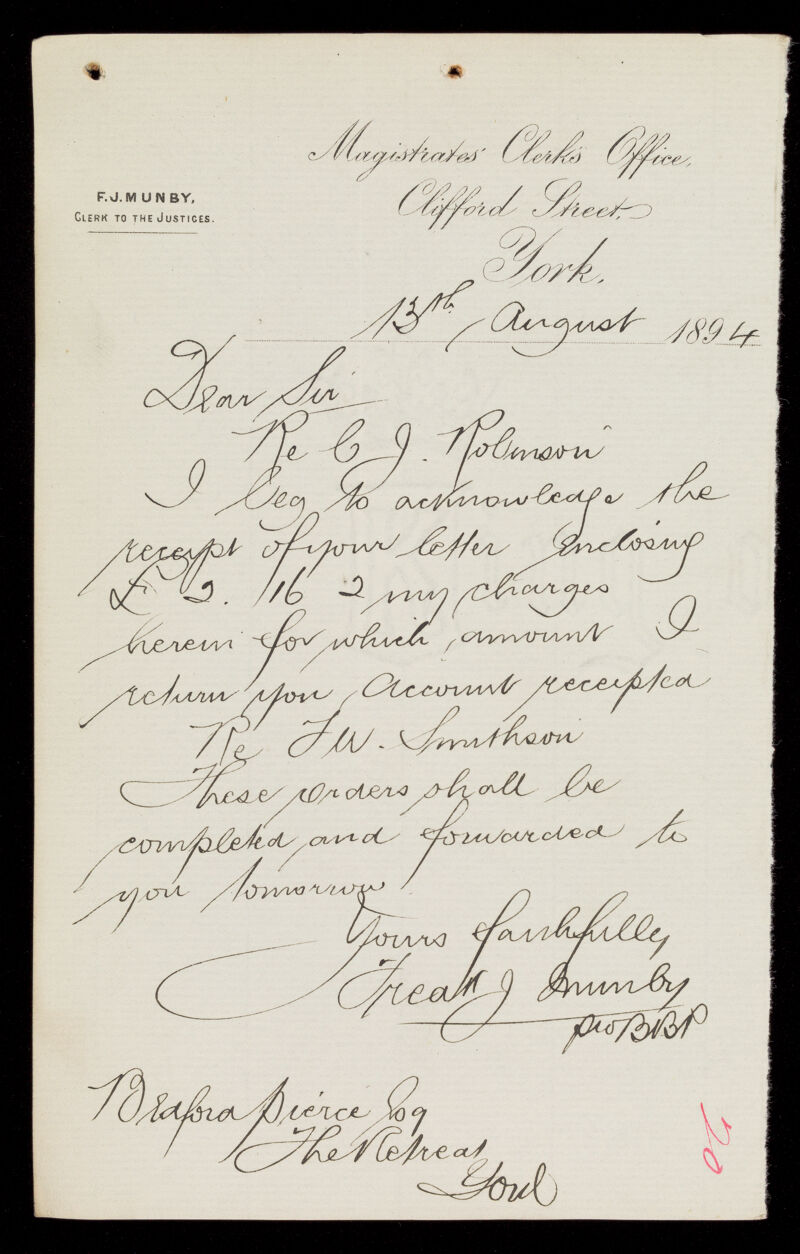 Magistrates' Clerk's Office,
F.J. MUNBY,
CLERK TO THE JUSTICES.
Clifford Street,
York.
13th August 1894
Dear Sir
Re C J. Robinson
I beg to acknowledge the
receipt of your letter enclosing
£ 2. 16 2 my charges
herein for which amount I
return you Account receipted
Re F W. Smithson
These orders shall be
completed and forwarded to
you tomorrow
Yours faithfully
Fredk J Munby
pro BBP
Bedford Pierce Esq
The Retreat
York
20